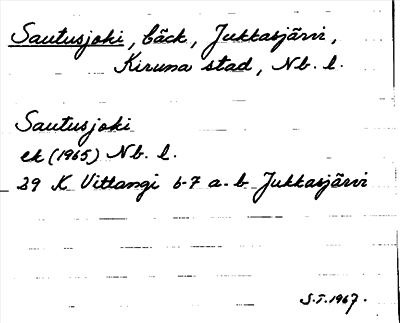 Sautusjoki, bäck, Jukkasjärvi,
Kiruna stad, Nb. l.
Sautusjoki
ek (1965) Nb. l.
29 K Vittangi 6-7 a-b Jukkasjärvi
S.T. 1967.